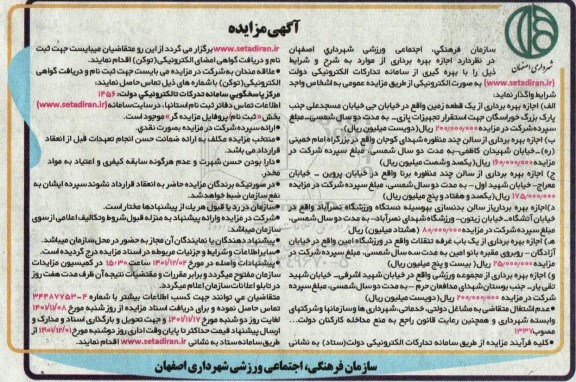 آگهی مزایده
شهرداری اصفهان
سازمان فرهنگی، اجتماعی ورزشی شهرداری اصفهان
در نظردارد اجازه بهره برداری از موارد به شرح و شرایط
ذیل را با بهره گیری از سامانه تدارکات الکترونیکی دولت
(www.setadiran.ir) به صورت الکترونیکی از طریق مزایده عمومی به اشخاص واجد
شرایط واگذار نماید.
الف) اجازه بهره برداری از یک قطعه زمین واقع در خیابان جی خیابان مسجدعلی جنب
پارک بزرگ خوراسگان جهت استقرار تجهیزات بازی... به مدت دو سال شمسی، مبلغ
سپرده شرکت در مزایده ۲۰۰/۰۰۰/۰۰۰ ریال (دویست میلیون ریال)
ب) اجازه بهره برداری از سالن چند منظوره شهدای کوجان واقع در بزرگراه امام خمینی
(ره)_ خیابان شهیدان کاظمی-به مدت دو سال شمسی، مبلغ سپرده شرکت در
مزایده ۱۶۰/۰۰۰/۰۰۰ ریال (یکصد و شصت میلیون ریال)
ج) اجازه بهره برداری از سالن چند منظوره برنا واقع در خیابان پروین _ خیابان
معراج- خیابان شهید اول- به مدت دو سال شمسی، مبلغ سپرده شرکت در مزایده
۱۷۵/۰۰۰/۰۰۰ ریال (یکصد و هفتاد و پنج میلیون ریال)
د) اجازه بهره برداری از سالن بدنسازی بهوسیله دستگاه ورزشگاه نصرآباد واقع در
خیابان آتشگاه_ خیابان زیتون- ورزشگاه شهدای نصرآباد- به مدت دو سال شمسی،
مبلغ سپرده شرکت در مزایده ۸۰/۰۰۰/۰۰۰ (هشتاد میلیون ریال)
هـ) اجازه بهره برداری از یک باب غرفه تنقلات واقع در ورزشگاه امین واقع در خیابان
آزادگان - روبروی مقبره بانو امین به مدت سه سال شمسی، مبلغ سپرده شرکت در
مزایده ۲۵/۰۰۰/۰۰۰ ریال (بیست و پنج میلیون ریال)
و) اجازه بهره برداری از مجموعه ورزشی واقع در خیابان شهید اشرفی_ خیابان شهید
تقی یار- جنب بوستان شهدای مدافعان حرم - به مدت دو سال شمسی، مبلغ سپرده
شرکت در مزایده ۲۰۰/۰۰۰/۰۰۰ ریال (دویست میلیون ریال)
• عدم اشتغال متقاضی به مشاغل دولتی، خدماتی، شهرداری ها و سازمانها و شرکتهای
وابسته شهرداری و همچنین رعایت قانون راجع به منع مداخله کارکنان دولت...
مصوب ۱۳۳۷
• کلیه فرآیند مزایده از طریق سامانه تدارکات الکترونیکی دولت (ستاد) به نشانی
www.setadiran.ir برگزار می گردد از این رو متقاضیان میبایست جهت ثبت
نام و دریافت گواهی امضای الکترونیکی (توکن) اقدام نمایند.
• علاقه مندان به شرکت در مزایده می بایست جهت ثبت نام و دریافت گواهی
الکترونیکی (توکن) با شماره های ذیل تماس حاصل نمایند:
مرکز پاسخگویی سامانه تدارکات الکترونیکی دولت: ۱۴۵۶
اطلاعات تماس دفاتر ثبت نام استانها، در سایت سامانه (www.setadiran.ir)
بخش «ثبت نام/پروفایل مزایده گر» موجود است.
• ارائه سپرده شرکت در مزایده به صورت نقدی.
• منتخب مزایده مکلف به ارائه ضمانت حسن انجام تعهدات قبل از انعقاد
قرارداد می باشد.
• دارا بودن حسن شهرت و عدم هرگونه سابقه کیفری و اعتیاد به مواد
مخدر.
• در صورتیکه برندگان مزایده حاضر به انعقاد قرارداد نشوند سپرده ایشان به
نفع سازمان ضبط خواهد شد.
• سازمان در رد یا قبول هر یک از پیشنهادها مختار است.
• شرکت در مزایده و ارائه پیشنهاد به منزله قبول شروط و تکالیف اعلامی از سوی
سازمان میباشد.
• پیشنهاد دهندگان یا نمایندگان آن مجاز به حضور در محل سازمان میباشد.
• سایر اطلاعات و شرایط و جزئیات مربوطه در اسناد مزایده درج گردیده است.
• پیشنهادات واصله در مورخ ۱۴۰۱/۱۲/۰۲ در ساعت ۱۵:۳۰ در کمیسیون مزایدات
سازمان مفتوح میگردد و برابر مقررات و مقتضیات نتیجه آن ظرف مدت هفت روز
در تابلو اعلانات سازمان اعلام میگردد.
متقاضیان می توانند جهت کسب اطلاعات بیشتر با شماره ۴-۳۴۴۸۷۷۵۳
تماس حاصل نموده و برای دریافت اسناد مزایده از روز شنبه مورخ ۱۴۰۱/۱۱/۰۸
لغایت روز دوشنبه مورخ ۱۴۰۱/۱۱/۱۷ و جهت تحویل و بارگذاری اسناد و مدارک و
ارسال پیشنهاد قیمت حداکثر تا پایان وقت اداری روز دوشنبه مورخ ۱۴۰۱/۱۲/۰۱ از
طریق سامانه ستاد به نشانی www.setadiran.ir اقدام نمایند.
سازمان فرهنگی، اجتماعی ورزشی شهرداری اصفهان